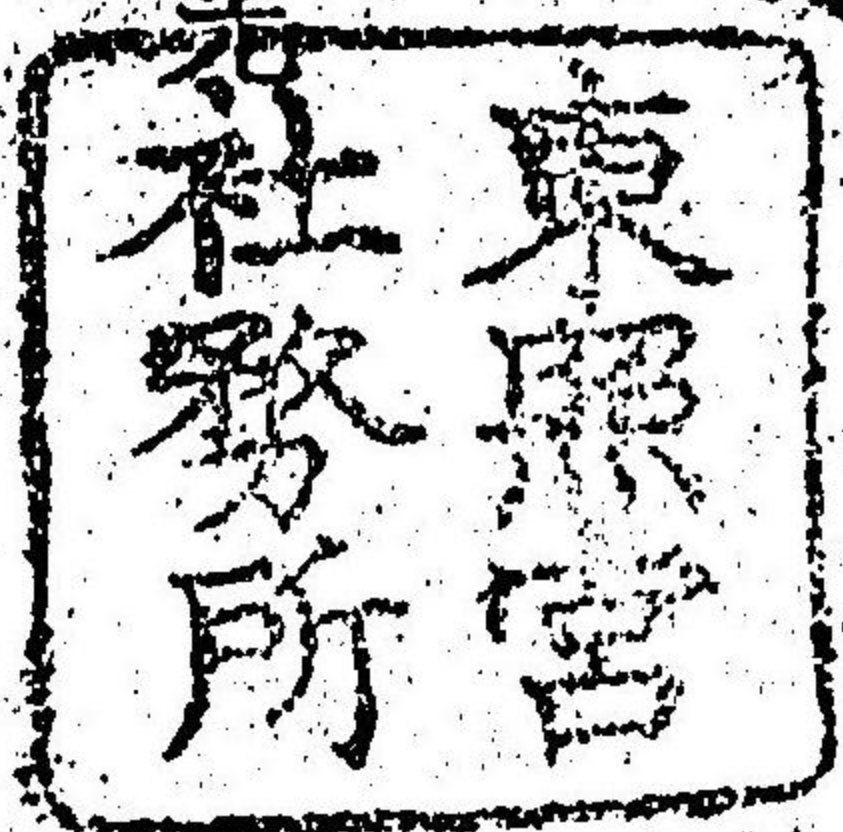 東照宮
社務所